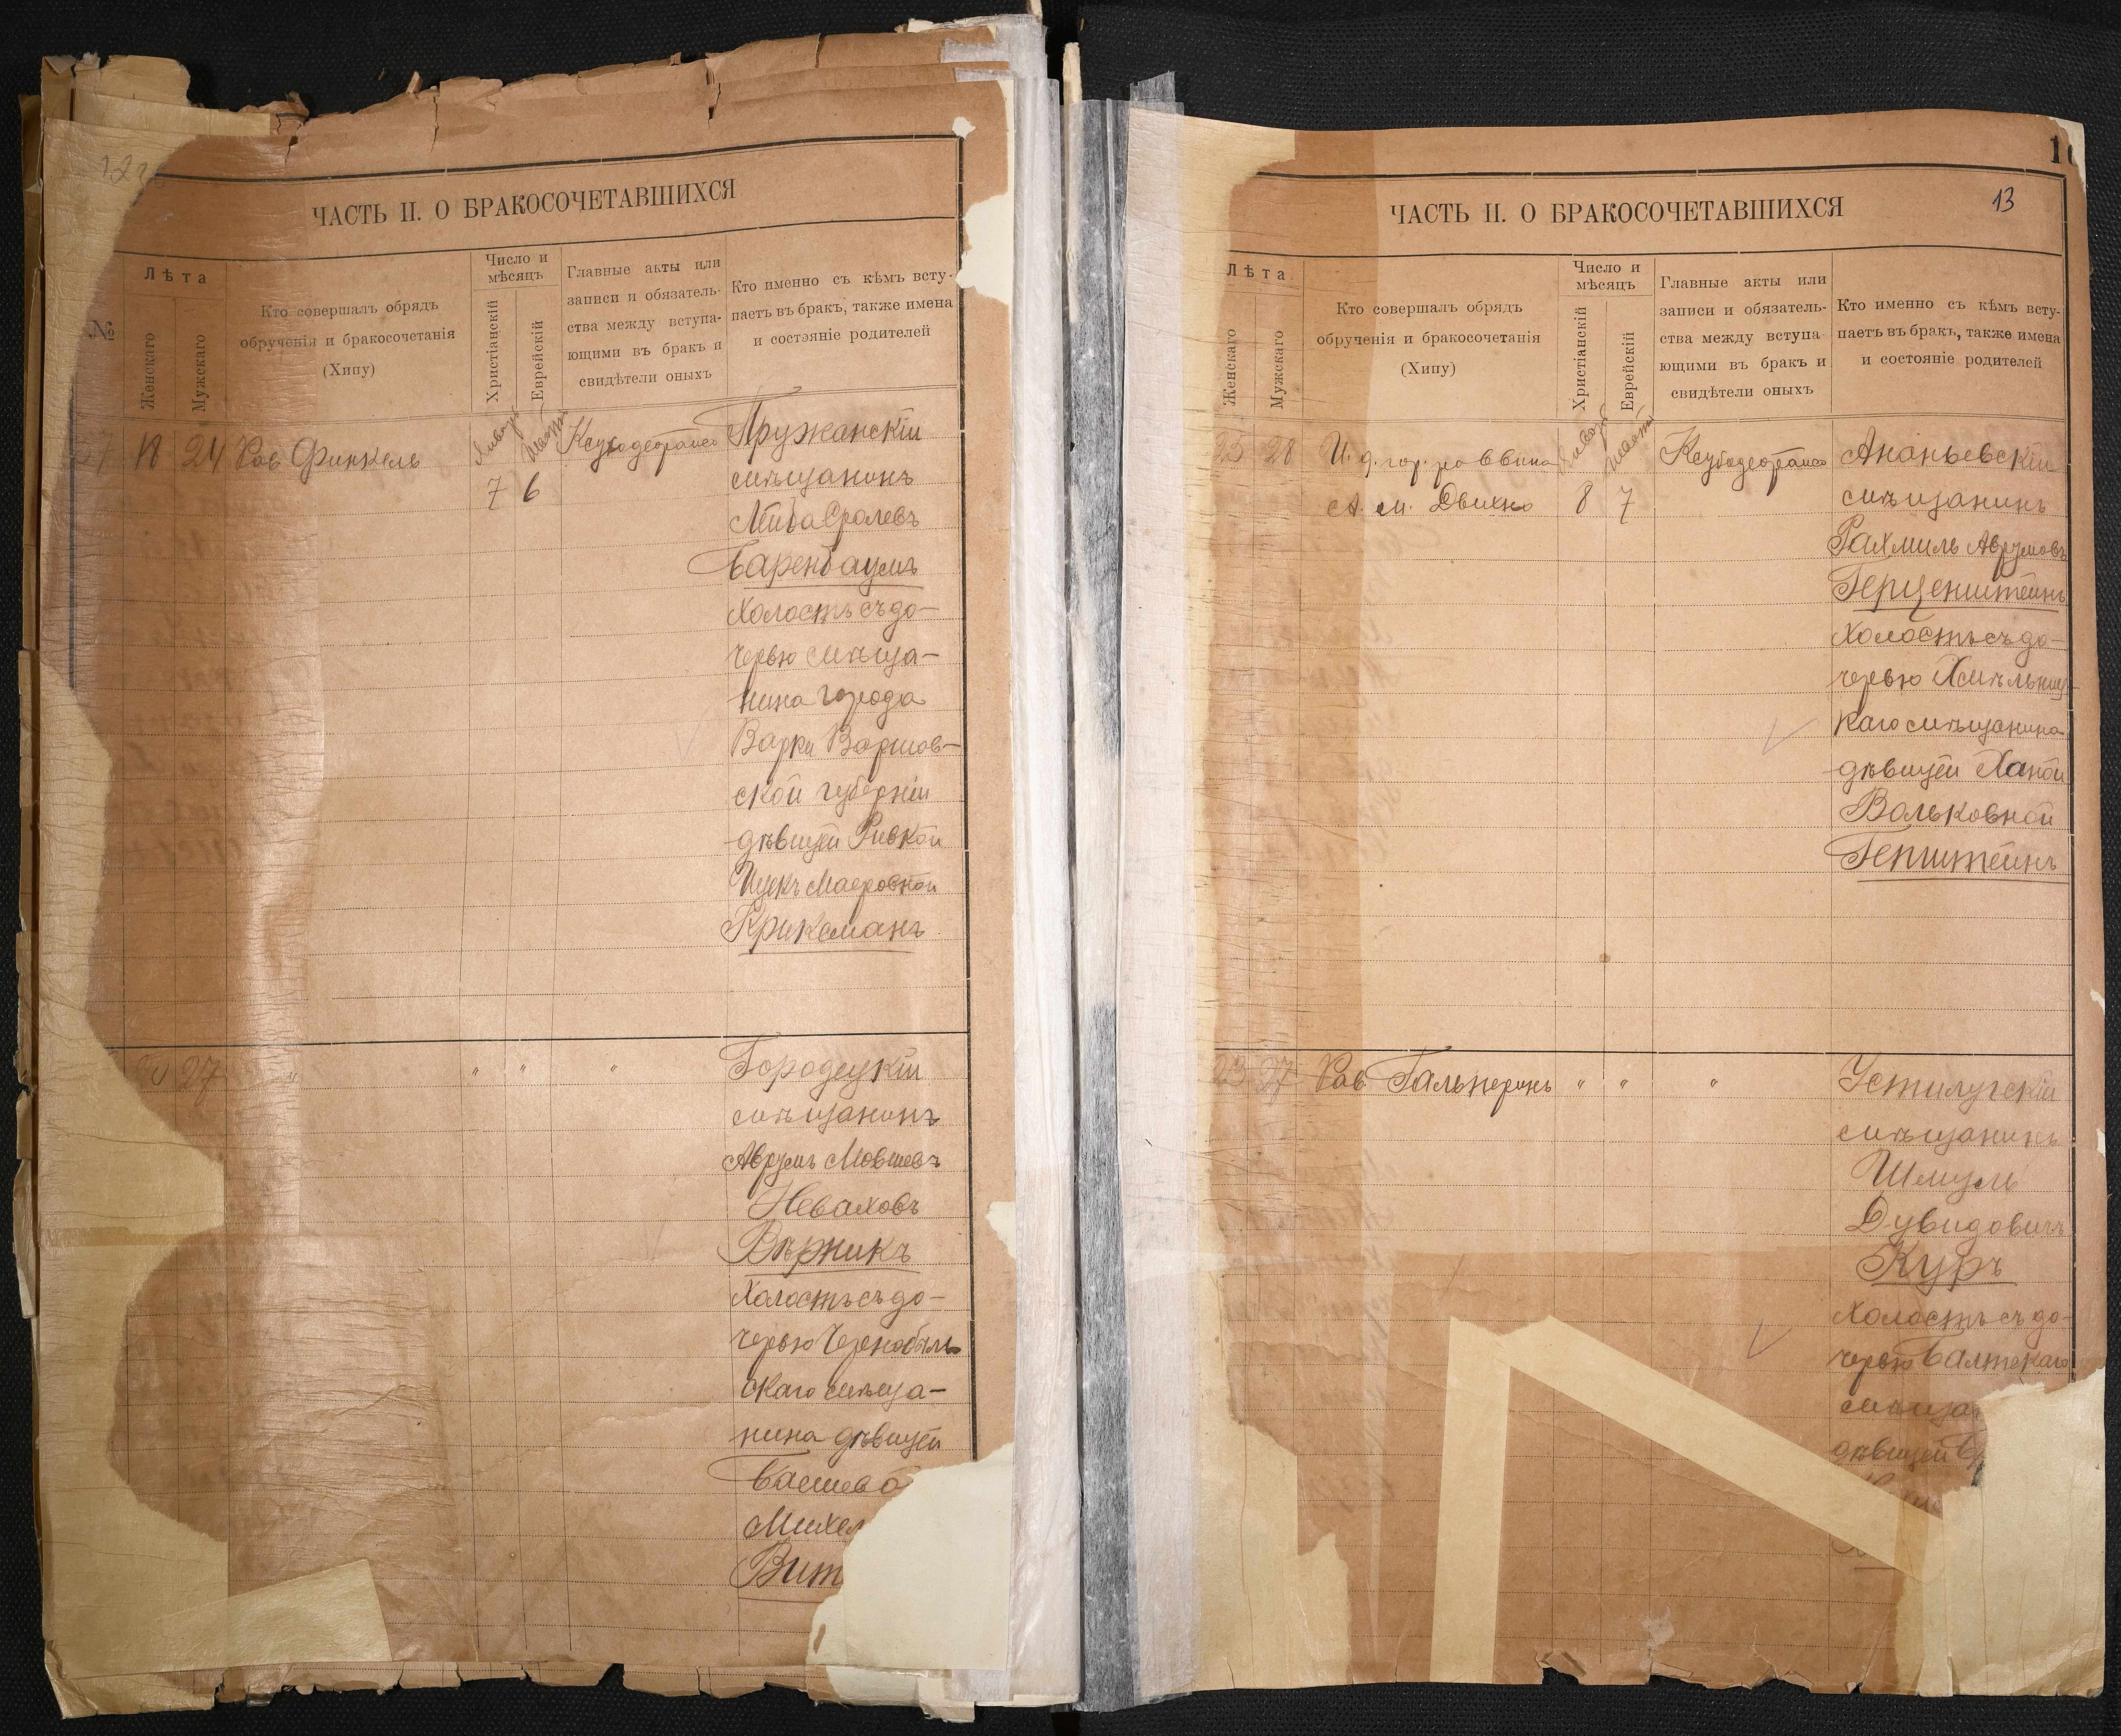 ЧАСТЬ II. О БРАКОСОЧЕТАВШИХСЯ
№
Лѣта
Женскаго
Мужскаго
Кто совершалъ обрядъ
обрученія и бракосочетанія
(Хипу)
Число и
мѣсяцъ
Христіанскій
Еврейскій
Главные акты или
записи и обязатель-
ства между вступа-
ющими въ бракъ и
свидѣтели оныхъ
Кто именно съ кѣмъ всту-
паетъ въ бракъ, также имена
и состояніе родителей
18 24 Рав Финкель
Январь
7 6
Пружанскій
мѣщанинъ
Лейба Сролевъ
Баренбаумъ
холостъ съ до-
черью мѣща-
нина города
Варки Варшав-
ской губерніи
дѣвицей Ривкой
Ицекъ Маеровной
Криксманъ
27 " " " "
Городецкій
мѣщанинъ
Аврумъ Мовшевъ
Неваховъ
Вѣрникъ
холостъ съ до-
черью Чернобыль
скаго мѣща-
нина дѣвицей
Басшевой
Михел
Вит
ЧАСТЬ II. О БРАКОСОЧЕТАВШИХСЯ
13
Лѣта
Женскаго
Мужскаго
Кто совершалъ обрядъ
обрученія и бракосочетанія
(Хипу)
Число и
мѣсяцъ
Христіанскій
Еврейскій
Главные акты или
записи и обязатель-
ства между вступа-
ющими въ бракъ и
свидѣтели оныхъ
Кто именно съ кѣмъ всту-
паетъ въ бракъ, также имена
и состояніе родителей
25 28 И. д. гор. раввина
Январь
8 7
Ананьевскій
мѣщанинъ
Рахмиль Аврумовъ
Герценштейнъ
холостъ съ до-
черью Хмѣльниц-
каго мѣщанина
дѣвицей Ханой
Вольковной
Гепштейнъ
23 27 Рав. Гальперинъ " " "
Устилугскій
мѣщанинъ
Шмуль
Дувидовичъ
Куръ
холостъ съ до-
черью Балтскаго
мѣща
дѣвицей